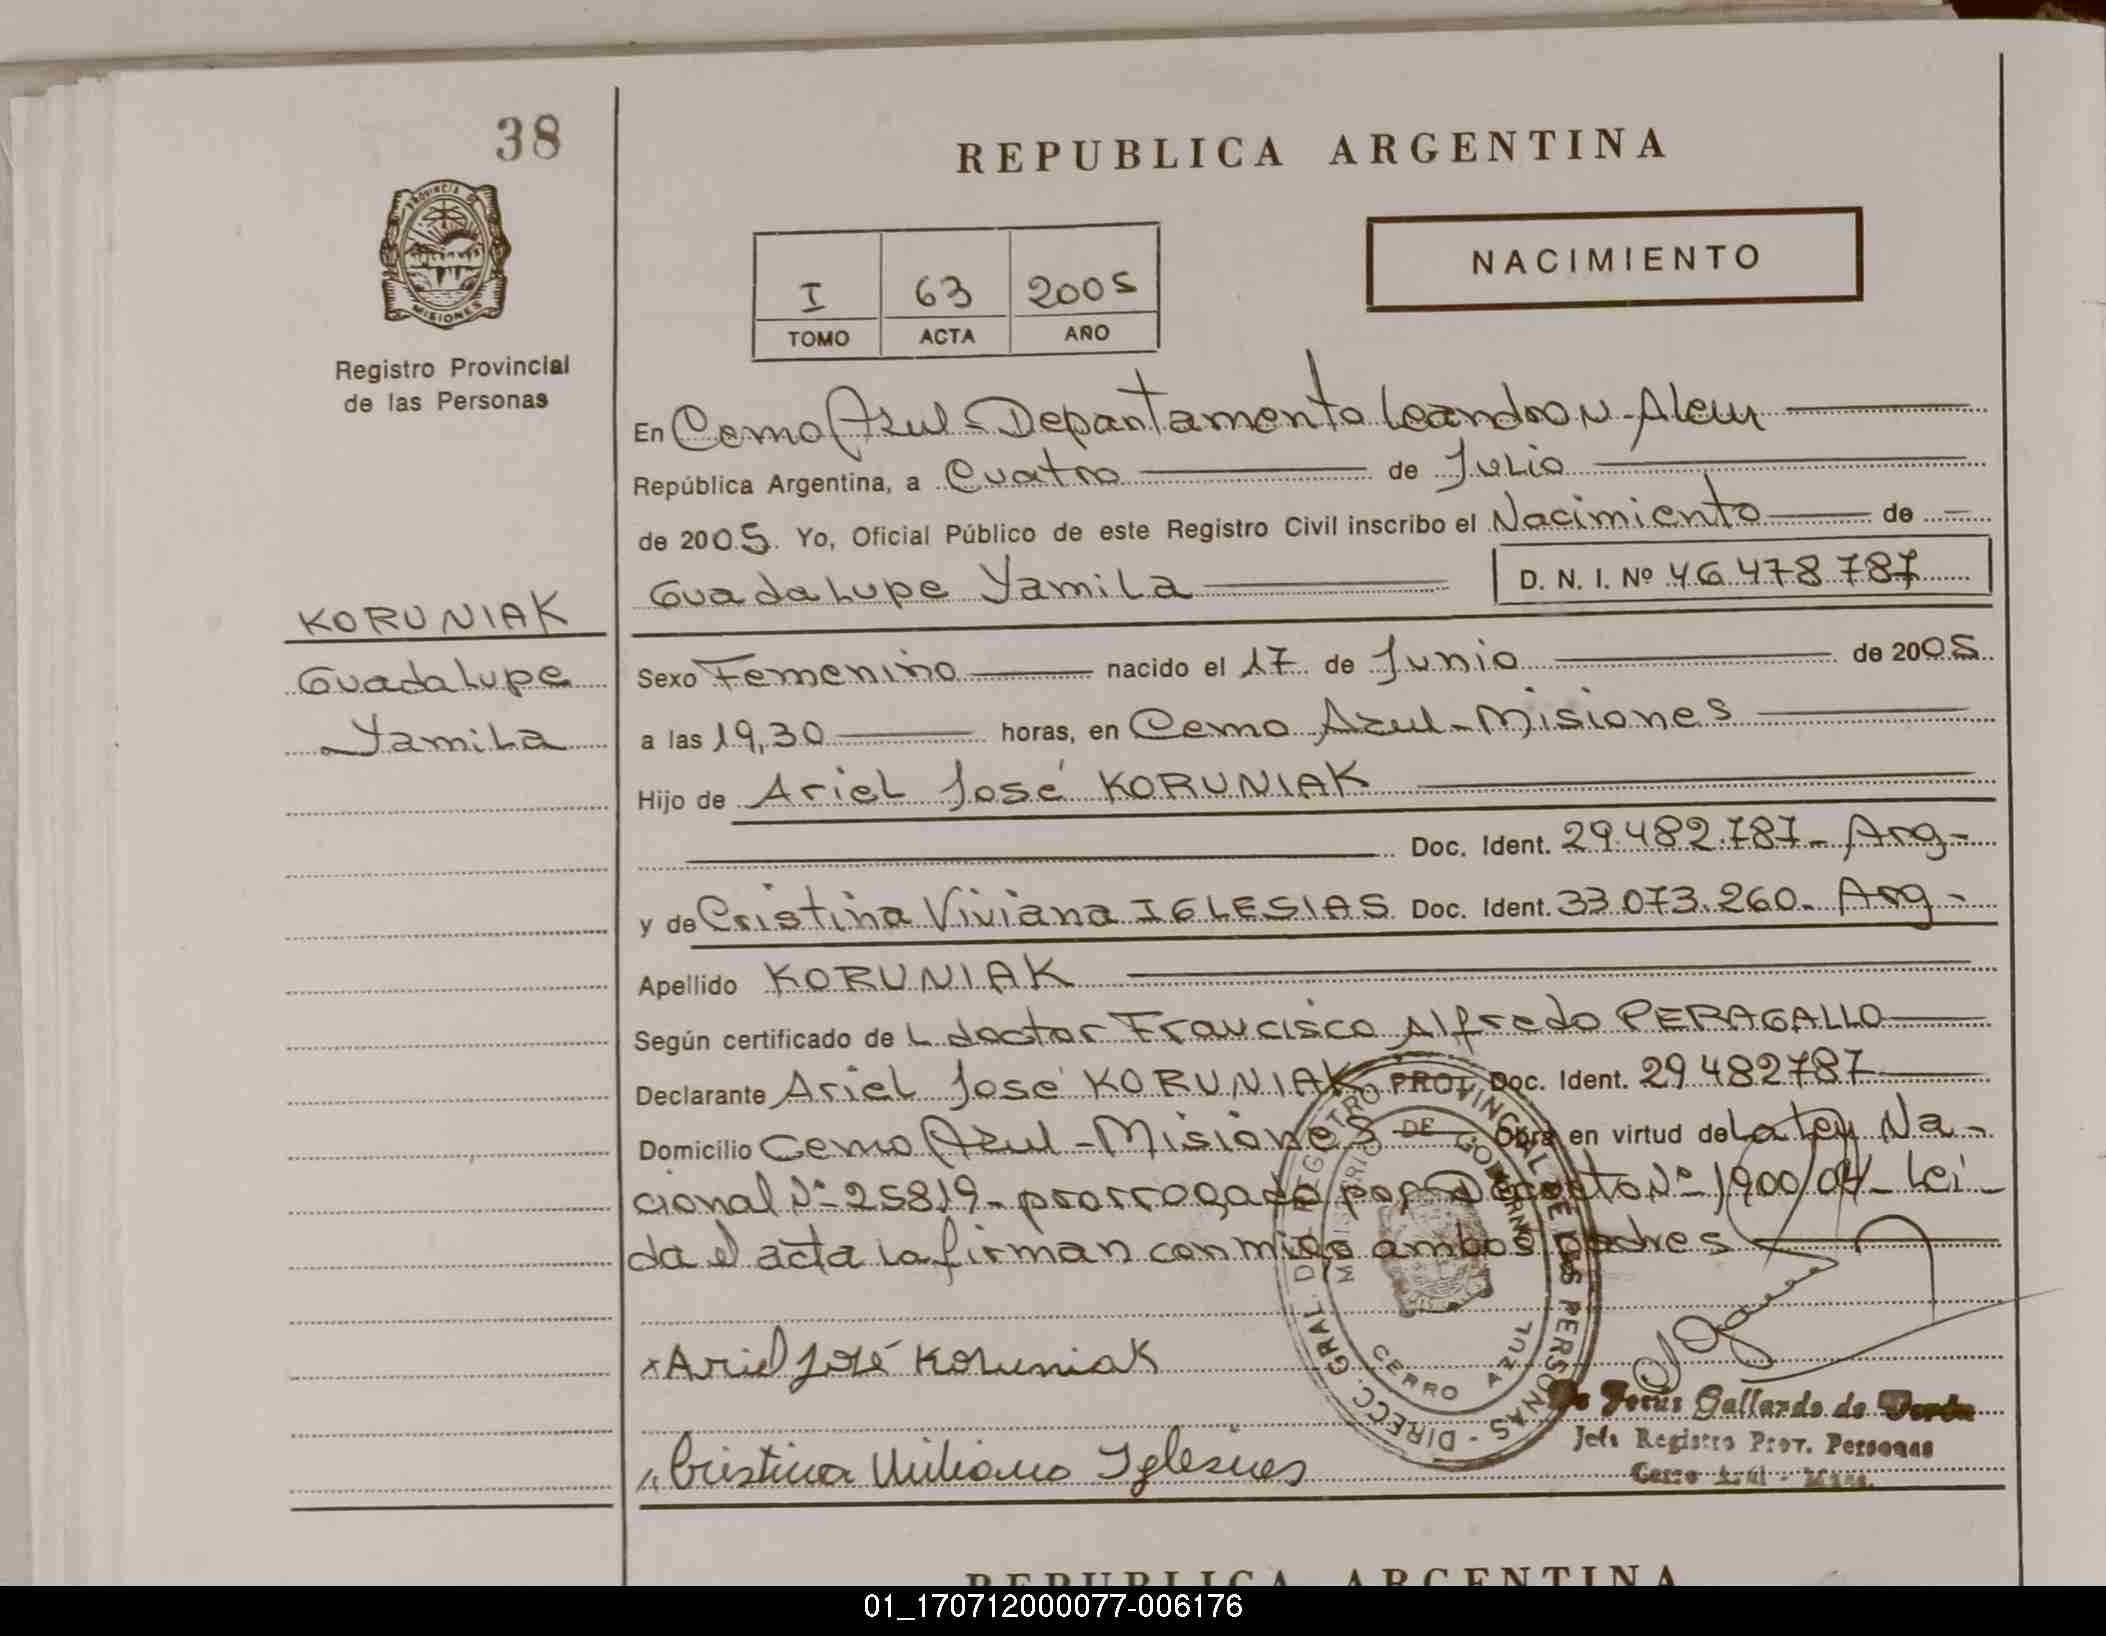 38
REPUBLICA ARGENTINA
PROVINCIA DE
MISIONES
NACIMIENTO
I 63 2005
TOMO ACTA AÑO
Registro Provincial
de las Personas
En Cerro Azul - Departamento Leandro N. Alem
República Argentina, a Cuatro de Julio
de 2005. Yo, Oficial Público de este Registro Civil inscribo el Nacimiento de
Guadalupe Yamila D. N. I. Nº 46 478 787
KORUNIAK
Guadalupe
Yamila
Sexo Femenino nacido el 17 de Junio de 2005
a las 19,30 horas, en Cerro Azul - Misiones
Hijo de Ariel José KORUNIAK
Doc. Ident. 29.482.787- Arg-
y de Cristina Viviana IGLESIAS Doc. Ident. 33.073.260- Arg-
Apellido KORUNIAK
Según certificado de L doctor Francisco Alfredo PERAGALLO
Declarante Ariel José KORUNIAK Doc. Ident. 29 482787
Domicilio Cerro Azul - Misiones Obra en virtud de La Ley Na-
cional Nº 25819- prorrogado por Decreto Nº 1900/04- Lei-
da el acta la firman conmigo ambos padres
x Ariel José Koruniak
Cristina Viviana Iglesias
DIRECC. GRAL. DE REGISTRO PROVINCIAL DE LAS PERSONAS -
MINISTERIO DE GOBIERNO
CERRO AZUL
De Jesús Gallardo de
Jefe Registro Prov. Personas
Cerro Azul - Mnes.
REPUBLICA ARGENTINA
01_170712000077-006176